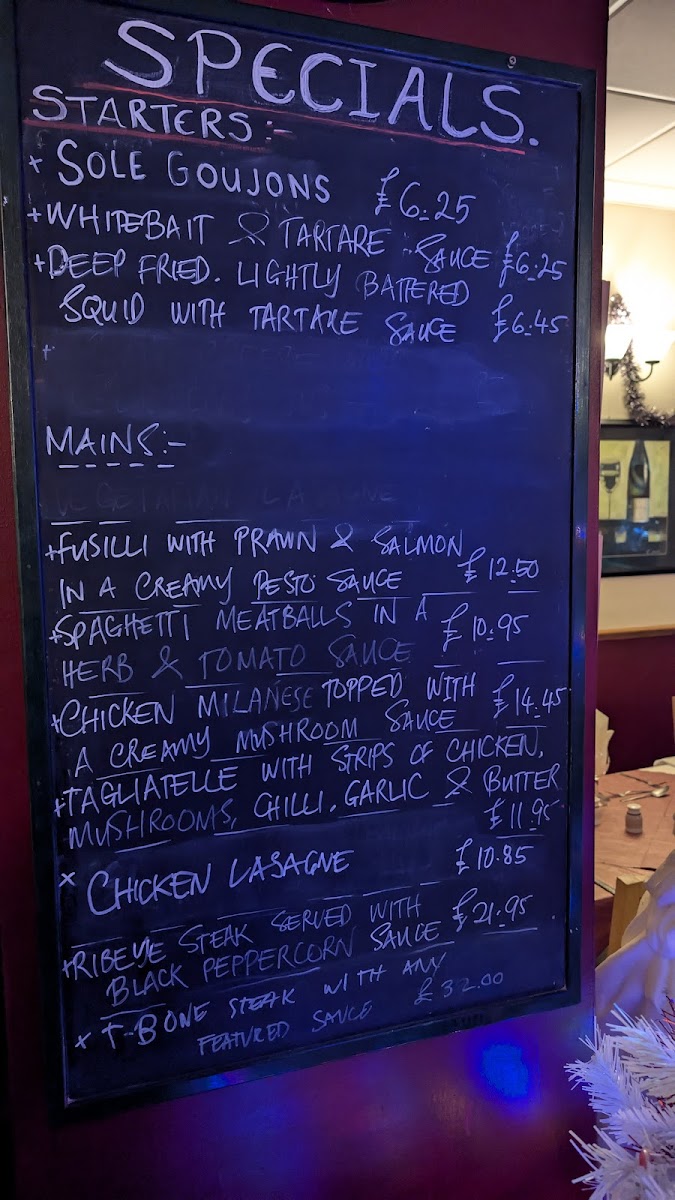 SPECIALS.
STARTERS:-
+ SOLE GOUJONS £6.25
+ WHITEBAIT & TARTARE SAUCE £6.25
+ DEEP FRIED. LIGHTLY BATTERED
SQUID WITH TARTARE SAUCE £6.45
+
MAINS:-
VEGETARIAN LASAGNE
+ FUSILLI WITH PRAWN & SALMON
IN A CREAMY PESTO SAUCE £12.50
+ SPAGHETTI MEATBALLS IN A £10.95
HERB & TOMATO SAUCE
+ CHICKEN MILANESE TOPPED WITH £14.45
A CREAMY MUSHROOM SAUCE
+ TAGLIATELLE WITH STRIPS OF CHICKEN,
MUSHROOMS, CHILLI. GARLIC & BUTTER
£11.95
x CHICKEN LASAGNE £10.85
+ RIBEYE STEAK SERVED WITH £21.95
BLACK PEPPERCORN SAUCE
x T-BONE STEAK WITH ANY
FEATURED SAUCE £32.00